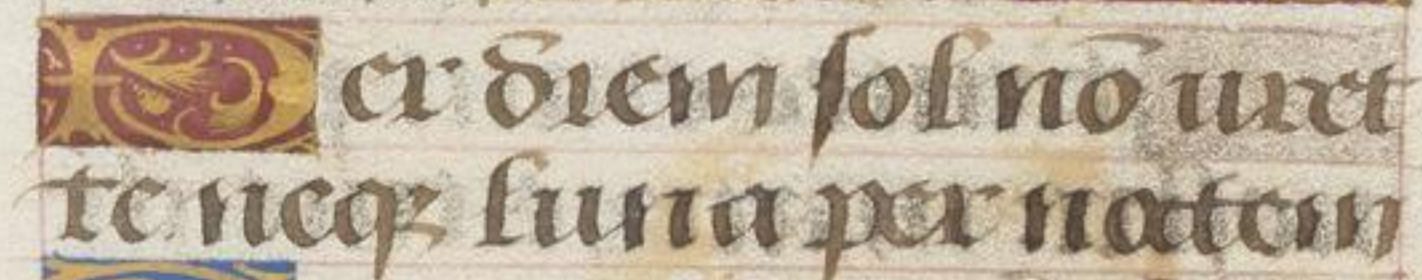 Per diem sol nō uret
te neqȝ luna per noctem